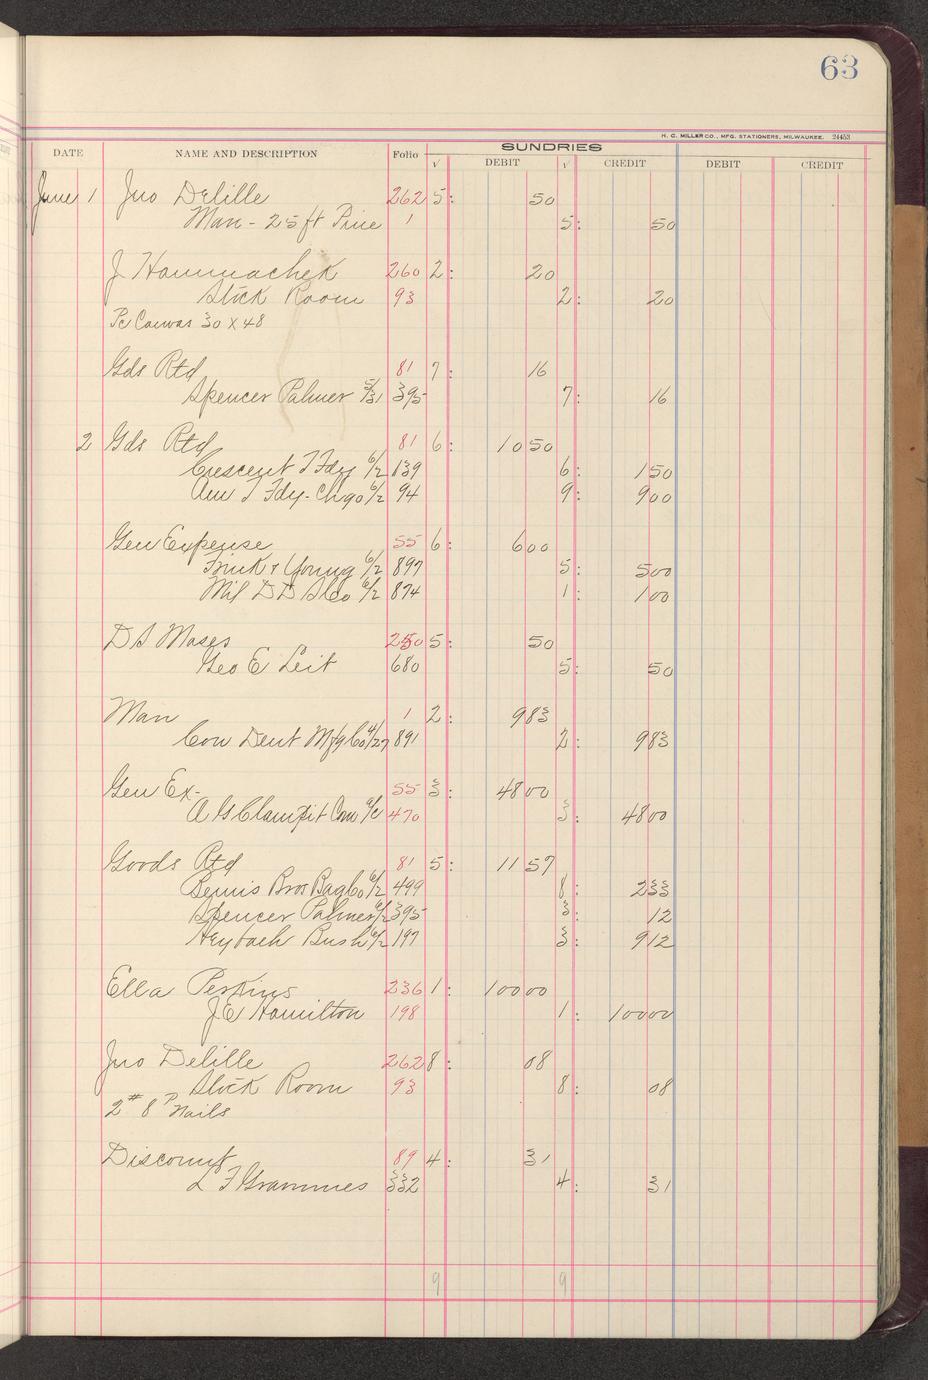 63
H. C. MILLER CO., MFG. STATIONERS, MILWAUKEE. 24453
SUNDRIES
DATE NAME AND DESCRIPTION Folio √ DEBIT √ CREDIT DEBIT CREDIT
June 1 Jno Delille 262 5: 50
Man - 25 ft Pine 1 5: 50
J Hammachek 260 2: 20
Stock Room 93 2: 20
Pc Canvas 30 x 48
Gds Rtd 81 7: 16
Spencer Palmer 5/31 395 7: 16
2 Gds Rtd 81 6: 10 50
Crescent T Fdy 6/2 139 6: 1 50
Am T Fdy - Chgo 6/2 94 9: 9 00
Gen Expense 55 6: 6 00
Frink & Young 6/2 897 5: 5 00
Mil D D S Co 6/2 874 1: 1 00
D S Moses 250 5: 50
Geo E Leit 680 5: 50
Man 1 2: 9 83
Con Dent Mfg Co 4/27 891 2: 9 83
Gen Ex- 55 3: 48 00
A G Clampit Com a/c 470 3: 48 00
Goods Rtd 81 5: 11 57
Bemis Bros Bag Co 6/2 499 8: 2 33
Spencer Palmer 6/2 395 3: 12
Heybach Bush 6/2 197 3: 9 12
Ella Perkins 236 1: 100 00
J E Hamilton 198 1: 100 00
Jno Delille 262 8: 08
Stock Room 93 8: 08
2# 8 P Nails
Discount 89 4: 31
L F Grammes 332 4: 31
9 9